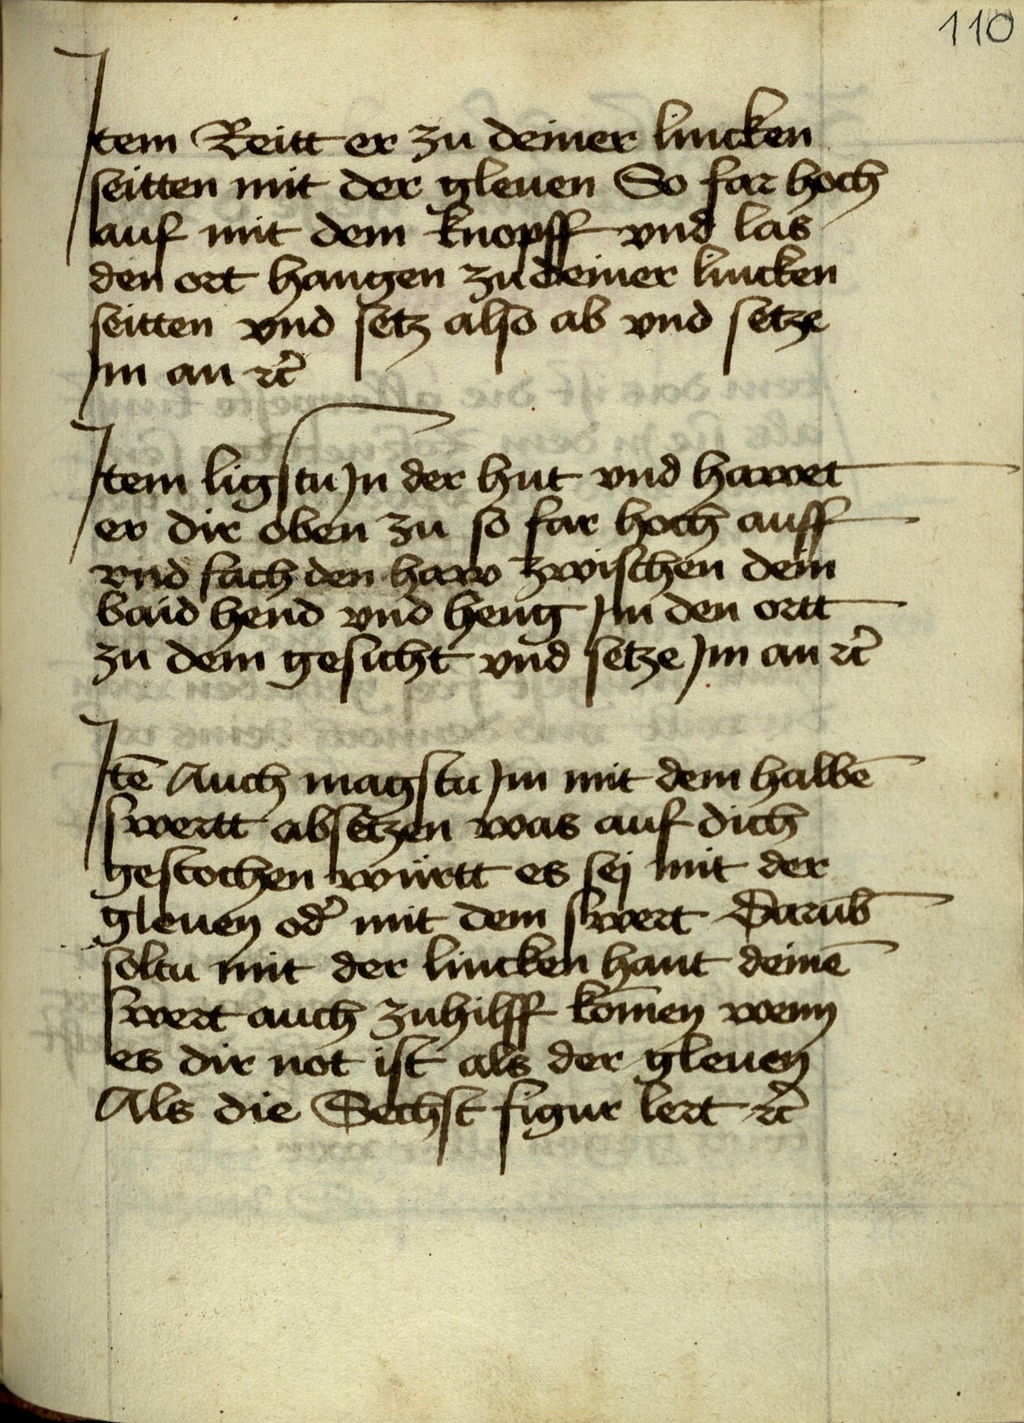 110
Item Reitt er zu deiner lincken
seitten mit der gleuen So far hoch
auf mit dem knopff vnd las
den ort hangen zu deiner lincken
seitten vnd setz also ab vnd setze
Jm an rc̄
Item ligstu Jn der hut vnd hawet
er dir oben zu so far hoch auff
vnd fach den haw zwischen dein
baid hend vnd heng Jm den ortt
zu dem gesicht vnd setze Jm an rc̄
Itē Auch magstu Jm mit dem halbē
swertt absetzen was auf dich
gestochen württ es sej mit der
gleuen od᷑ mit dem swert Darūb
soltu mit der lincken hant deinē
swert auch zuhilff kōmen wenn
es dir not ist als der gleuen
Als die Sechst figur lert rc̄